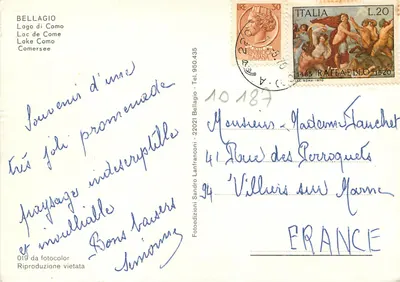 BELLAGIO
Lago di Como
Lac de Come
Lake Como
Comersee
Souvenir d'une
très joli promenade
paysage indescriptible
et inoubliable
Bons baisers
Simonne
019 da fotocolor
Riproduzione vietata
Fotoedizioni Sandro Lanfranconi - 22021 Bellagio - Tel. 950.435
30
ITALIA L.20
1483 RAFFAELLO 1520
1D 187
Monsieur Madame Hanchet
41 Rue des Perroquets
94 Villiers sur Marne
FRANCE